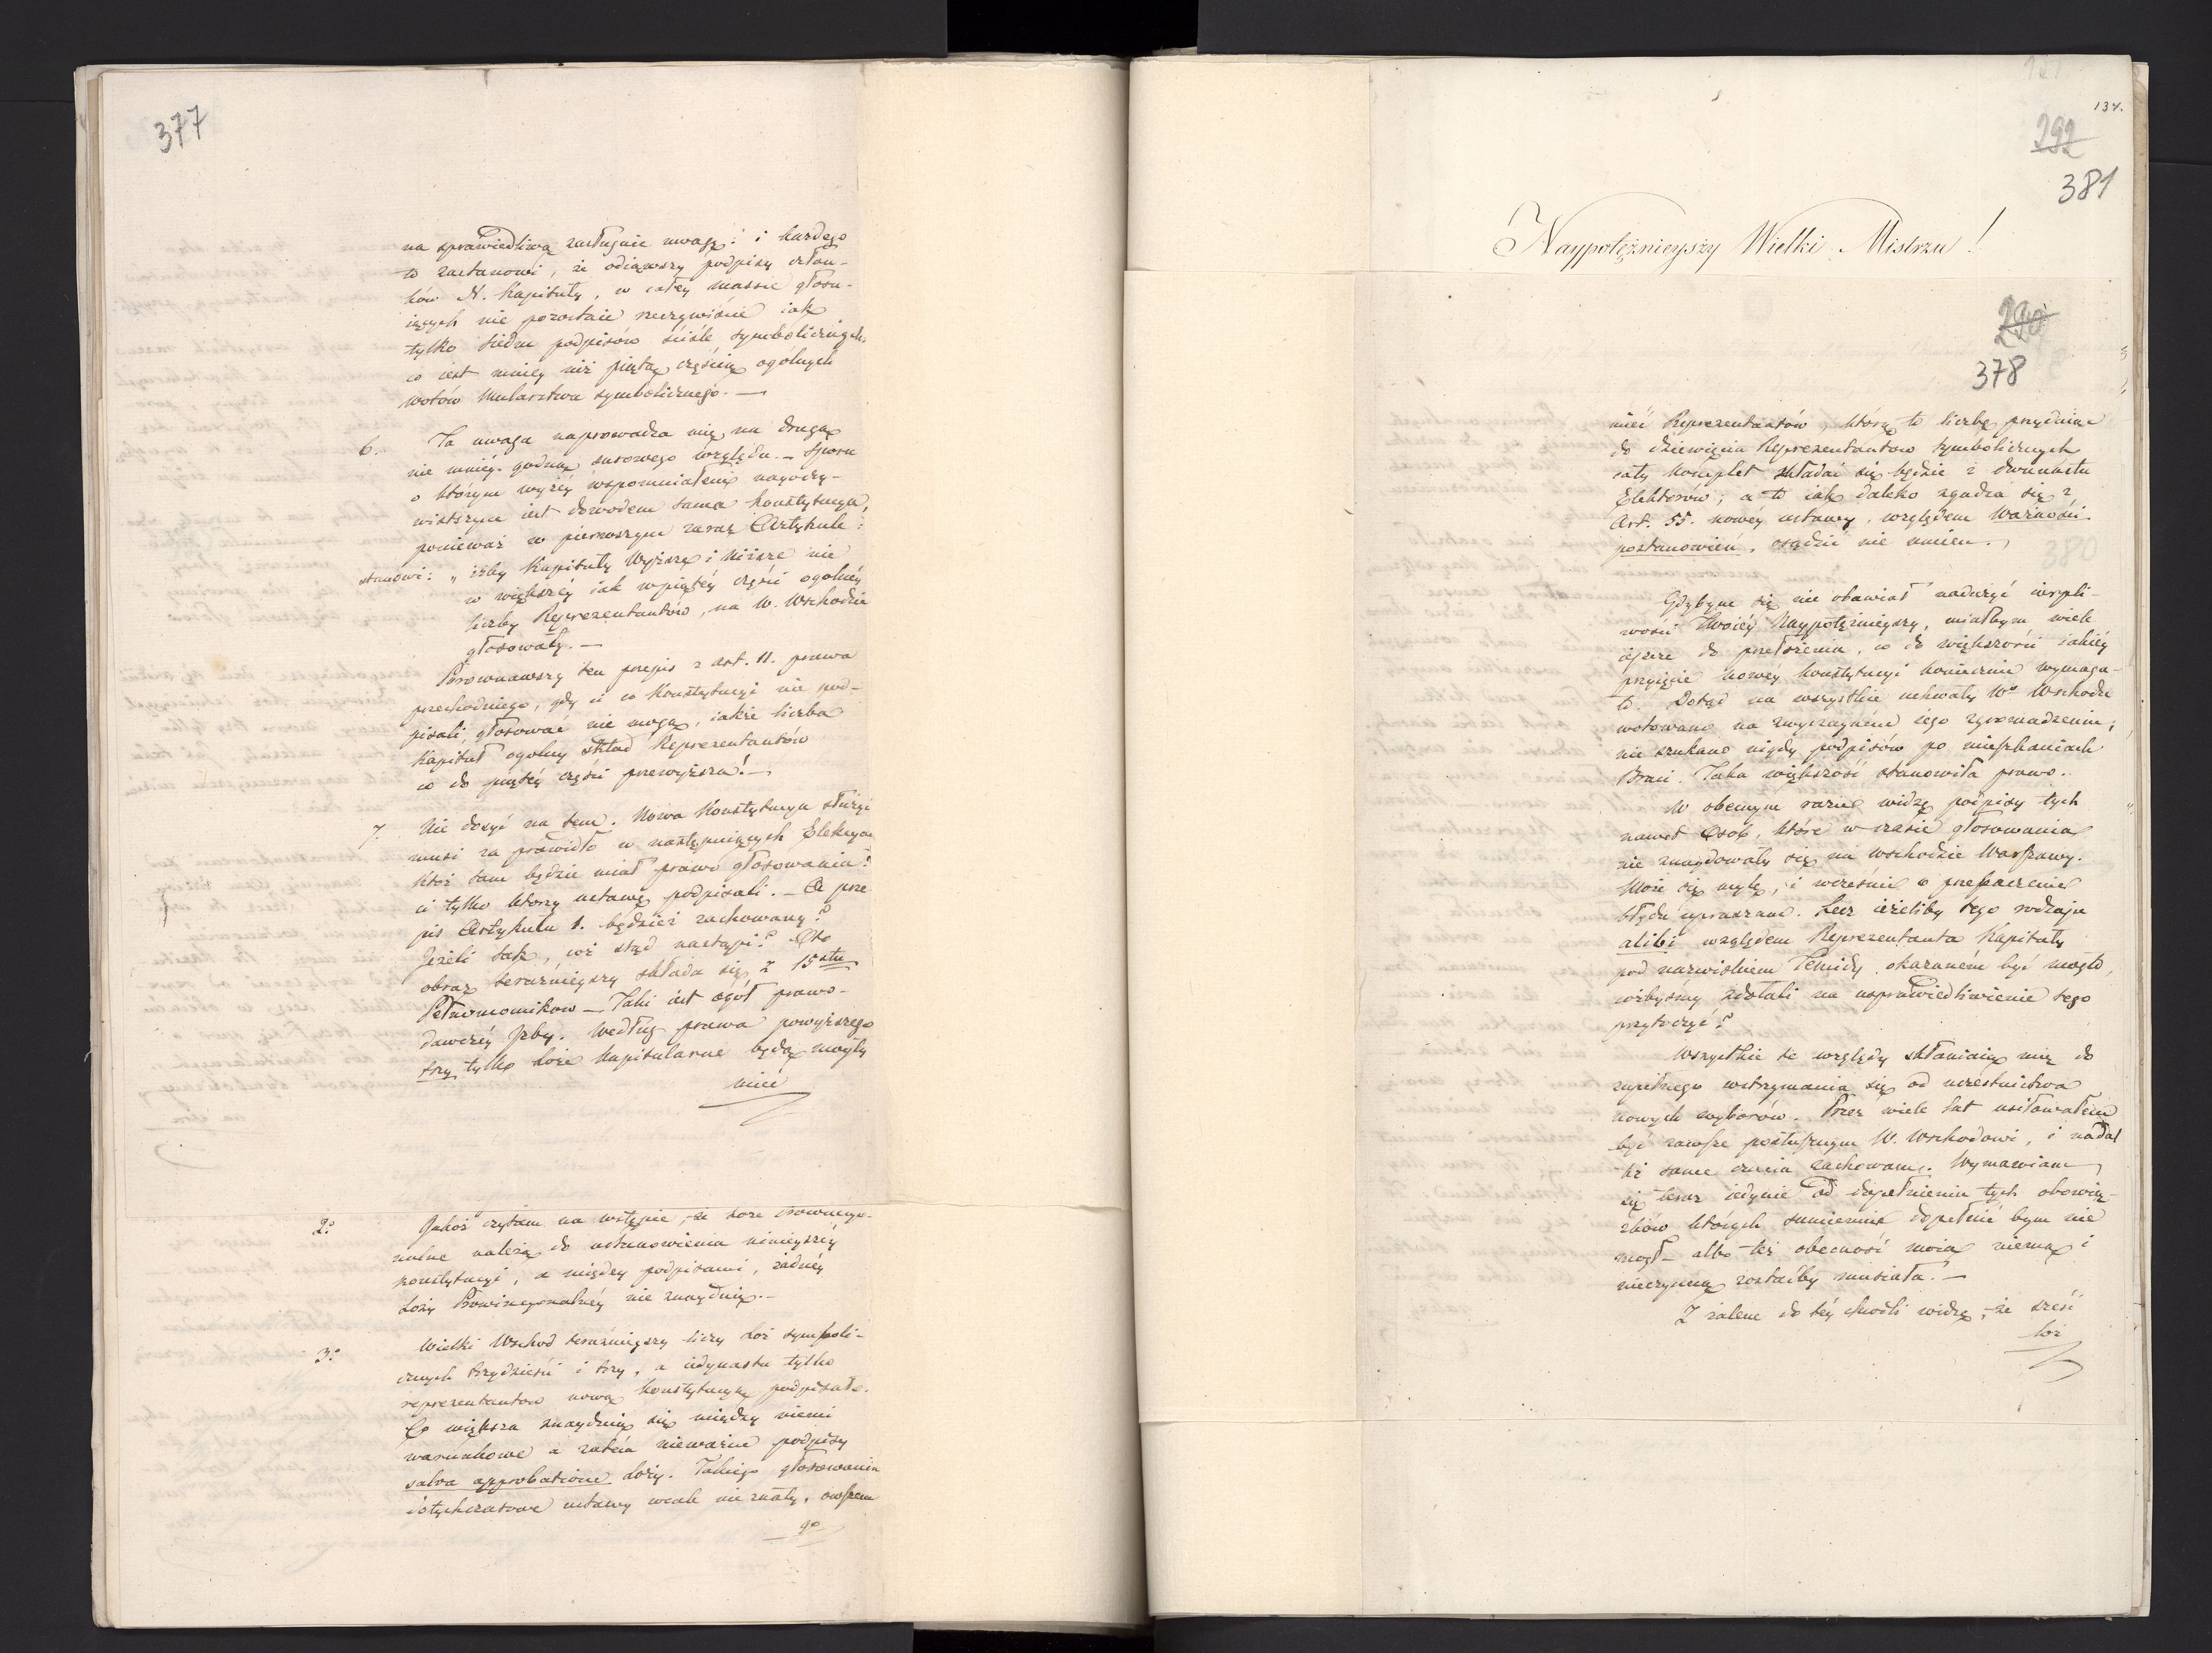 377
na sprawiedliwą zasługuie uwagę: i każdego
to zastanowi, że odiąwszy podpisy człon-
ków N. Kapituły, w całey massie głosu-
iących nie pozostaie rzeczywiście iak
tylko siedm podpisów ściśle symbolicznych,
co iest mniey niż piątą częścią ogólnych
wotów Mularstwa symbolicznego. —
6. Ta uwaga naprowadza mię na drugą
nie mniéy godną surowego względu. — Sporu
o którym wyżéy wspomniałem nayoczy-
wistszym iest dowodem sama Konstytucya,
ponieważ w pierwszym zaraz Artykule:
stanowi: „ iżby Kapituły Wyższe i Niższe nie
w większéy iak w piątéy części ogólnéy
liczby Reprezentantów, na W. Wschodzie
głosowały. —
Porownawszy ten przepis z art. 11. prawa
przechodniego, gdy ci co Konstytucyi nie pod-
pisali, głosować nie mogą, iakże liczba
Kapituł ogolny skład Reprezentantów
co do piątéy części przewyższa! —
7. Nie dosyć na tem. Nowa Konstytucya służyć
musi za prawidło w następuiących Elekcyach
Któż tam będzie miał prawo głosowania?
ci tylko ktorzy ustawę podpisali. — A prze
pis Artykułu 1. będzież zachowany?
Jeżeli tak, cóż stąd nastąpi? Oto
obraz teraźnieyszy składa się z 15stu
Pełnomocnikow — Taki iest ogół prawo-
dawczéy Izby. Według prawa powyższego
trzy tylko Loże Kapitularne będą mogły
mieć
2o. Jakoż czytam na wstępie, że Loże Prowincyo-
nalne należą do ustanowienia ninieyszéy
Konstytucyi, a między podpisami, żadnéy
Loży Prowincyonalnéy nie znayduię. —
3o. Wielki Wschod teraźnieyszy liczy Lóż symboli-
cznych trzydzieści i trzy, a iedynastu tylko
reprezentantow nową Konstytucyę podpisało.
Co większa znayduią się między niemi
warunkowe a zatém nieważne podpisy
salva approbatione Loży. Takiego głosowania
dotychczasowe ustawy wcale nie znały, owszem
go
134.
292
381
Naypotężnieyszy Wielki Mistrzu!
290
378
mieć Reprezentantów, którą to liczbę przydaiąc
do dziewięciu Reprezentantow symbolicznych
cały komplet składać się będzie z dwunastu
Elektorów; a to iak daleko zgadza się z
Art. 55. nowéy ustawy, względem Ważności
postanowień, osądzić nie umiem. —
380
Gdybym się nie obawiał nadużyć cierpli-
wości Twoiéy Naypotężnieyszy, miałbym wiele
ieszcze do przełożenia, co do większości iakiéy
przyięcie nowéy Konstytucyi koniecznie wymaga-
ło. Dotąd na wszystkie uchwały Wo Wschodu
wotowano na zwyczaynem iego zgromadzeniu,
nie szukano nigdy podpisów po mieszkaniach
Braci. Taka większość stanowiła prawo.
W obecnym razie widzę podpisy tych
nawet Osob, które w czasie głosowania
nie znaydowały się na wschodzie Warszawy.
Może się mylę, i wcześnie o przebaczenie
błędu upraszam. Lecz ieżeliby tego rodzaju
alibi względem Reprezentanta Kapituły
pod nazwiskiem Temidy okazaném być mogło,
cóżbyśmy zdołali na usprawiedliwienie tego
przytoczyć?
Wszystkie te względy skłaniaią mię do
zupełnego wstrzymania się od uczestnictwa
nowych wyborów. Przez wiele lat usiłowałem
być zawsze posłusznym W. Wschodowi, i nadal
też same czucia zachowam. Wymawiam
się teraz iedynie od dopełnienia tych obowiąz-
ków których sumiennie dopełnić bym nie
mógł — albo też obecność moia niema i
nieczynną zostaćby musiała. —
Z żalem do téy chwili widzę, że sześć
lóż